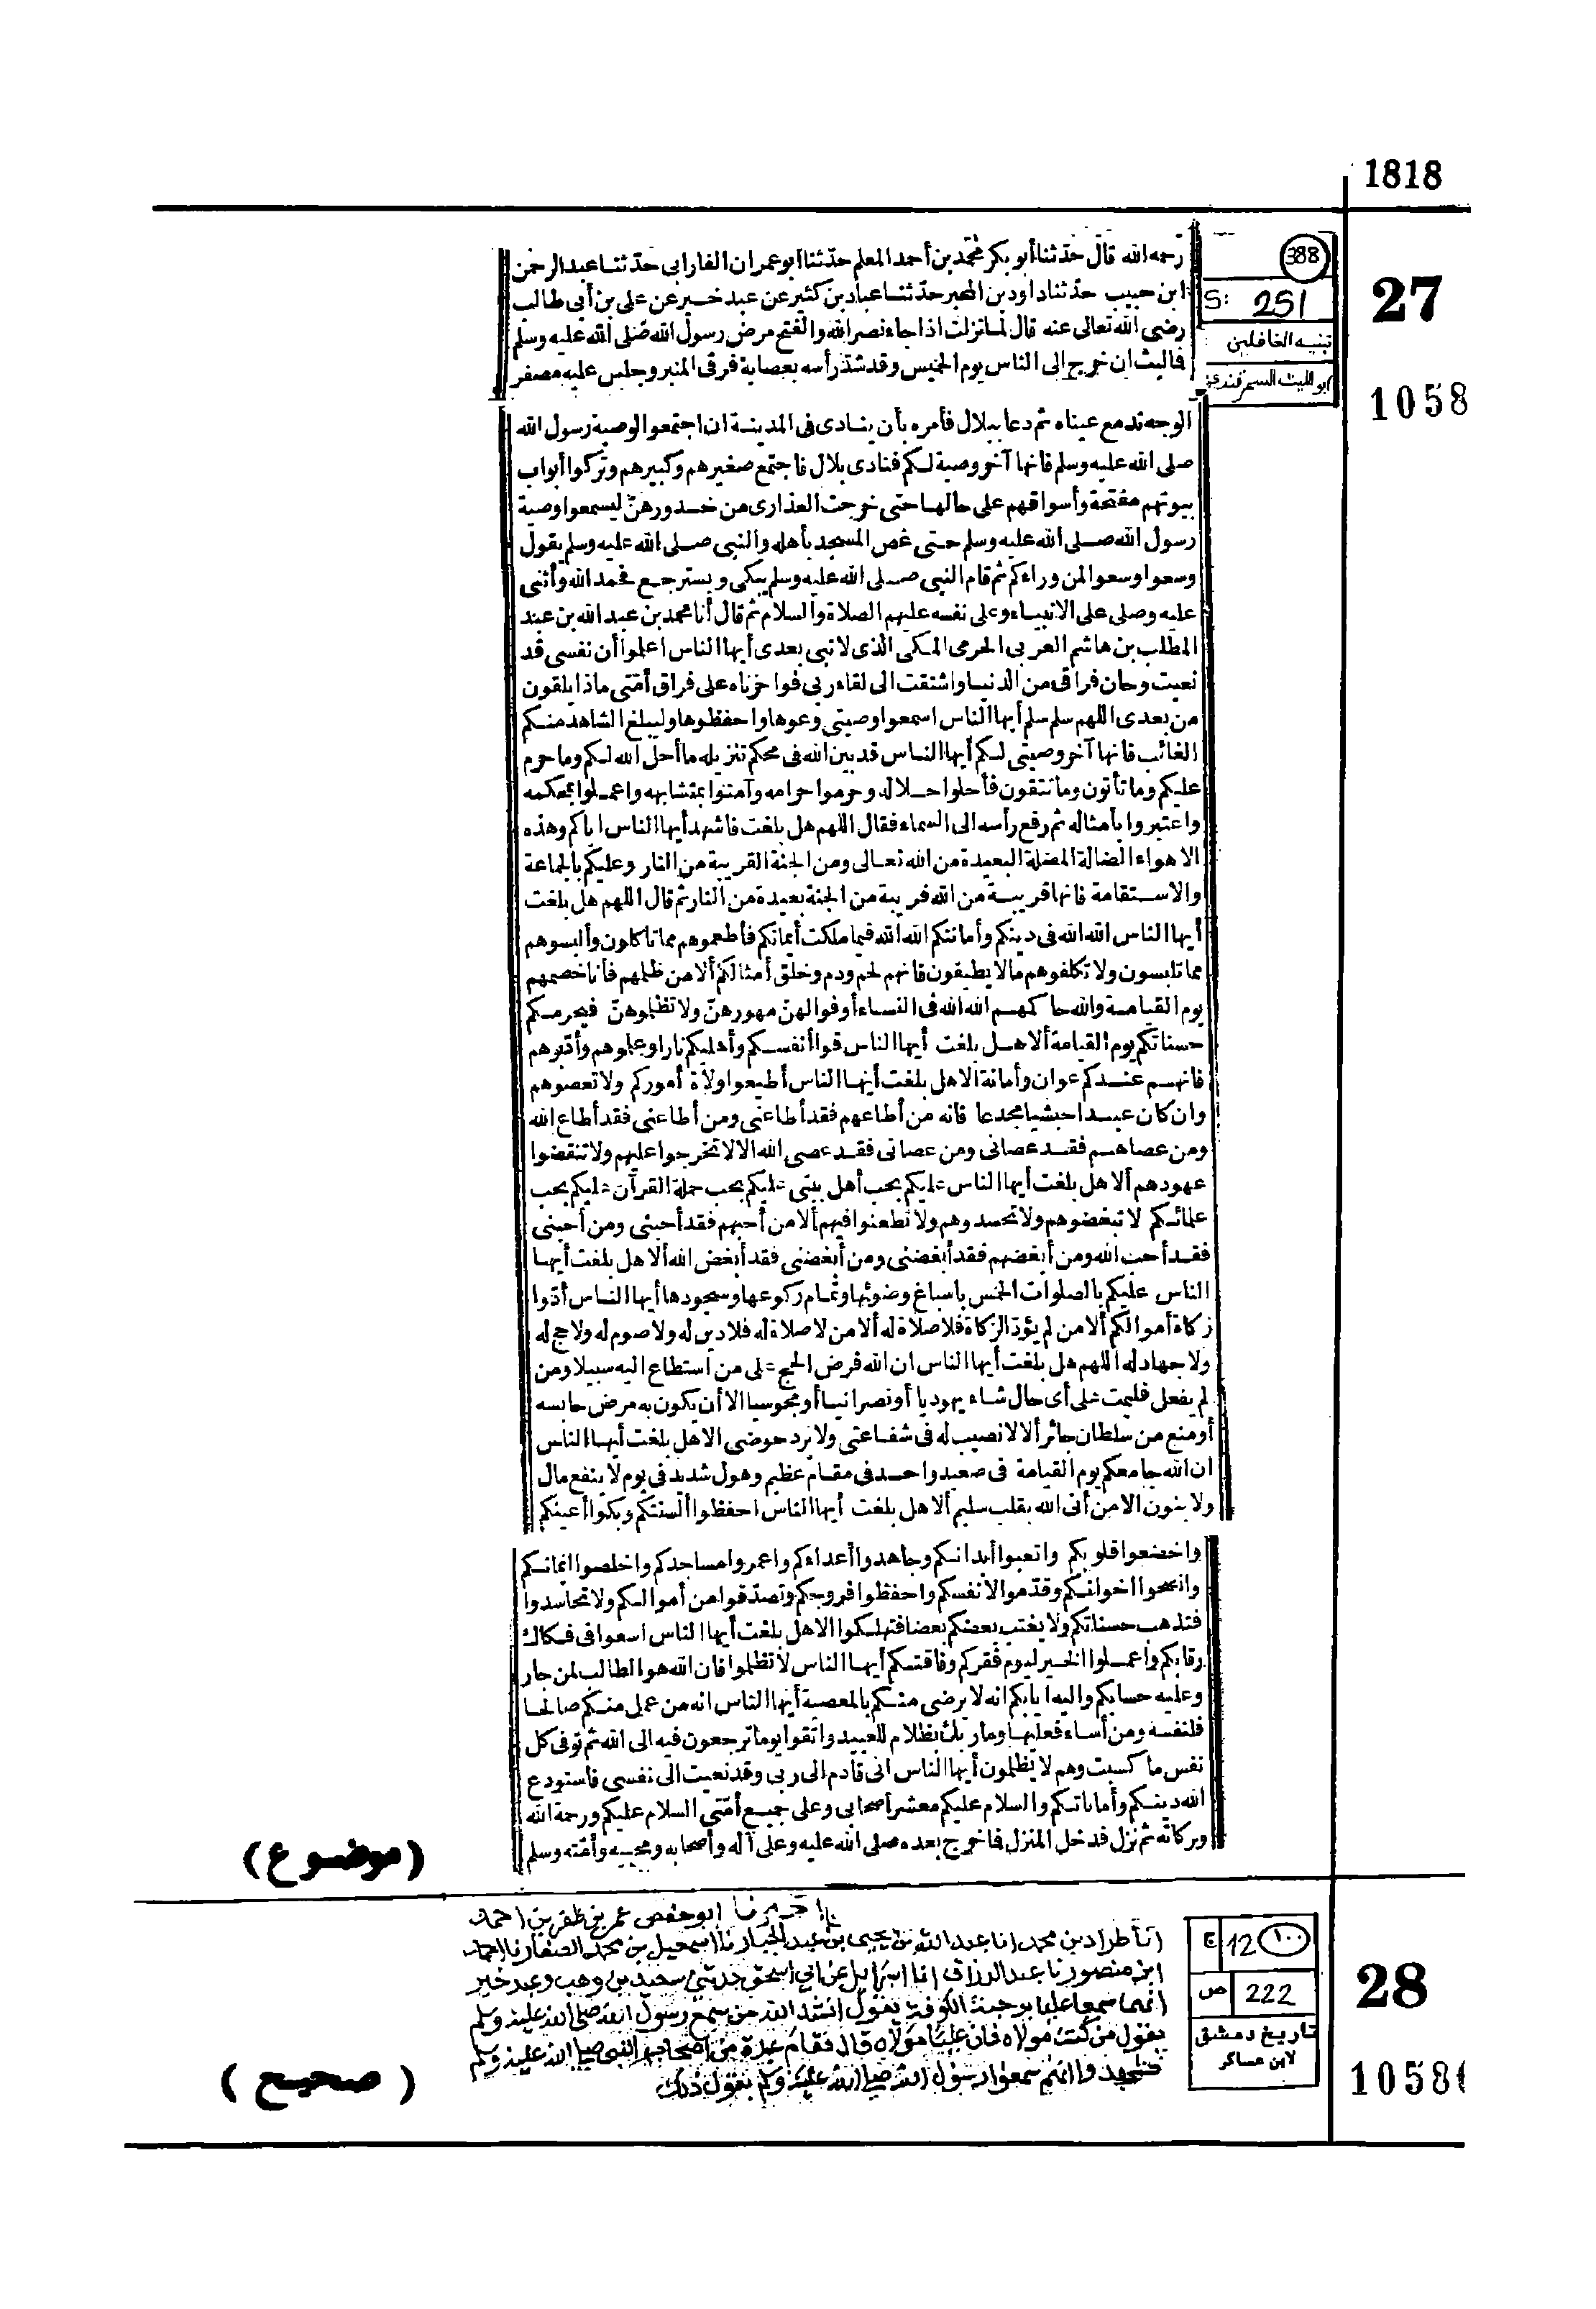 1818
27
1058
388
S: 251
تنبيه الغافلين
ابو الليث السمرقندى
رحمه الله قال حدّثنا أبو بكر محمد بن أحمد المعلم حدّثنا أبو عمران الفارابى حدّثنا عبد الرحمن
ابن حبيب حدّثنا داود بن المحبر حدّثنا عباد بن كثير عن عبد خير عن على بن أبى طالب
رضى الله تعالى عنه قال لما نزلت اذا جاء نصر الله والفتح مرض رسول الله صلى الله عليه وسلم
فما لبث ان خرج الى الناس يوم الخميس وقد شدّ رأسه بعصابة فرقى المنبر وجلس عليه مصفر
الوجه تدمع عيناه ثم دعا ببلال فأمره بأن ينادى فى المدينة ان اجتمعوا لوصية رسول الله
صلى الله عليه وسلم فانها آخر وصية لكم فنادى بلال فاجتمع صغيرهم وكبيرهم وتركوا أبواب
بيوتهم مفتحة وأسواقهم على حالها حتى خرجت العذارى من خدورهنّ ليسمعوا وصية
رسول الله صلى الله عليه وسلم حتى غص المسجد بأهله والنبى صلى الله عليه وسلم يقول
وسعوا وسعوا لمن وراءكم ثم قام النبى صلى الله عليه وسلم يبكى ويسترجع فحمد الله وأثنى
عليه وصلى على الانبياء وعلى نفسه عليهم الصلاة والسلام ثم قال أنا محمد بن عبد الله بن عبد
المطلب بن هاشم العربى الحرمى المكى الذى لا نبى بعدى أيها الناس اعلموا أن نفسى قد
نعيت وحان فراقى من الدنيا واشتقت الى لقاء ربى فواحزناه على فراق أمّتى ماذا يلقون
من بعدى اللهم سلم سلم أيها الناس اسمعوا وصيتى وعوها واحفظوها وليبلغ الشاهد منكم
الغائب فانها آخر وصيتى لكم أيها الناس قد بين الله فى محكم تنزيله ما أحل الله لكم وما حرم
عليكم وما تأتون وما تتقون فأحلوا حلاله وحرموا حرامه وآمنوا بمتشابهه واعملوا بمحكمه
واعتبروا بأمثاله ثم رفع رأسه الى السماء فقال اللهم هل بلغت فاشهد أيها الناس اياكم وهذه
الاهواء الضالة المضلة البعيدة من الله تعالى ومن الجنة القريبة من النار وعليكم بالجماعة
والاستقامة فانها قريبة من الله قريبة من الجنة بعيدة من النار ثم قال اللهم هل بلغت
أيها الناس الله الله فى دينكم وأمانتكم الله الله فيما ملكت أيمانكم فأطعموهم مما تأكلون وألبسوهم
مما تلبسون ولا تكلفوهم ما لا يطيقون فانهم لحم ودم وخلق أمثالكم ألا من ظلمهم فأنا خصمهم
يوم القيامة والله حاكمهم الله الله فى النساء أوفوا لهنّ مهورهنّ ولا تظلموهنّ فيحرمكم
حسناتكم يوم القيامة ألا هل بلغت أيها الناس قوا أنفسكم وأهليكم نارا وعلموهم وأدّبوهم
فانهم عندكم عوان وأمانة الا هل بلغت أيها الناس أطيعوا ولاة أموركم ولا تعصوهم
وان كان عبدا حبشيا مجدعا فانه من أطاعهم فقد أطاعنى ومن أطاعنى فقد أطاع الله
ومن عصاهم فقد عصانى ومن عصانى فقد عصى الله الا لا تخرجوا عليهم ولا تنقضوا
عهودهم ألا هل بلغت أيها الناس عليكم بحب أهل بيتى عليكم بحب حملة القرآن عليكم بحب
علمائكم لا تبغضوهم ولا تحسدوهم ولا تطعنوا فيهم ألا من أحبهم فقد أحبنى ومن أحبنى
فقد أحب الله ومن أبغضهم فقد أبغضنى ومن أبغضنى فقد أبغض الله ألا هل بلغت أيها
الناس عليكم بالصلوات الخمس باسباغ وضوئها وتمام ركوعها وسجودها أيها الناس أدّوا
زكاة أموالكم ألا من لم يؤدّ الزكاة فلا صلاة له ألا من لا صلاة له فلا دين له ولا صوم له ولا حج له
ولا جهاد له اللهم هل بلغت أيها الناس ان الله فرض الحج على من استطاع اليه سبيلا ومن
لم يفعل فليمت على أى حال شاء يهوديا أو نصرانيا أو مجوسيا الا أن يكون به مرض حابسه
أو منع من سلطان جائر ألا لا نصيب له فى شفاعتى ولا يرد حوضى الا هل بلغت أيها الناس
ان الله جامعكم يوم القيامة فى صعيد واحد فى مقام عظيم وهول شديد فى يوم لا ينفع مال
ولا بنون الا من أتى الله بقلب سليم ألا هل بلغت أيها الناس احفظوا ألسنتكم وبكوا أعينكم
واخضعوا قلوبكم واتعبوا أبدانكم وجاهدوا أعداءكم واعمروا مساجدكم واخلصوا ايمانكم
وانصحوا اخوانكم وقدّموا لانفسكم واحفظوا فروجكم وتصدّقوا من أموالكم ولا تحاسدوا
فتذهب حسناتكم ولا يغتب بعضكم بعضا فتهلكوا الا هل بلغت أيها الناس اسعوا فى فكاك
رقابكم واعملوا الخير ليوم فقركم وفاقتكم أيها الناس لا تظلموا فان الله هو الطالب لمن جار
وعليه حسابكم واليه ايابكم انه لا يرضى منكم بالمعصية أيها الناس انه من عمل منكم صالحا
فلنفسه ومن أساء فعليها وما ربك بظلام للعبيد واتقوا يوما ترجعون فيه الى الله ثم توفى كل
نفس ما كسبت وهم لا يظلمون أيها الناس انى قادم الى ربى وقد نعيت الى نفسى فاستودع
الله دينكم وأماناتكم والسلام عليكم معشر أصحابى وعلى جميع أمّتى السلام عليكم ورحمة الله
وبركاته ثم نزل فدخل المنزل فما خرج بعده صلى الله عليه وعلى آله وأصحابه ومحبيه وأمّته وسلم
(موضوع)
28
1058
١٠٠ 12 ج
222 ص
تاريخ دمشق
لابن عساكر
اخبرنا ابو حفص عمر بن ظفر بن احمد
انا طراد بن محمد انا عبد الله بن يحيى بن عبد الجبار نا اسمعيل بن محمد الصفار نا احمد
ابن منصور نا عبد الرزاق انا اسرائيل عن ابي اسحق حدثني سعيد بن وهب وعبد خير
انهما سمعا عليا برحبة الكوفة يقول انشد الله من سمع رسول الله صلى الله عليه وسلم
يقول من كنت مولاه فان عليا مولاه قال فقام عدة من اصحاب النبي صلى الله عليه وسلم
فشهدوا انهم سمعوا رسول الله صلى الله عليه وسلم يقول ذلك
(صحيح)